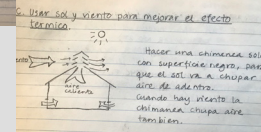 5. Usar sol y viento para mejorar el efecto
termico.
Hacer una chimenea sol
con superficie negro, par
que el sol va a chupar
aire de adentro.
cuando hay viento la
chimenea chupa aire
tambien.
ento
aire
caliente